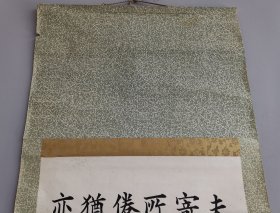 夫
寄
所
倦
猶
亦